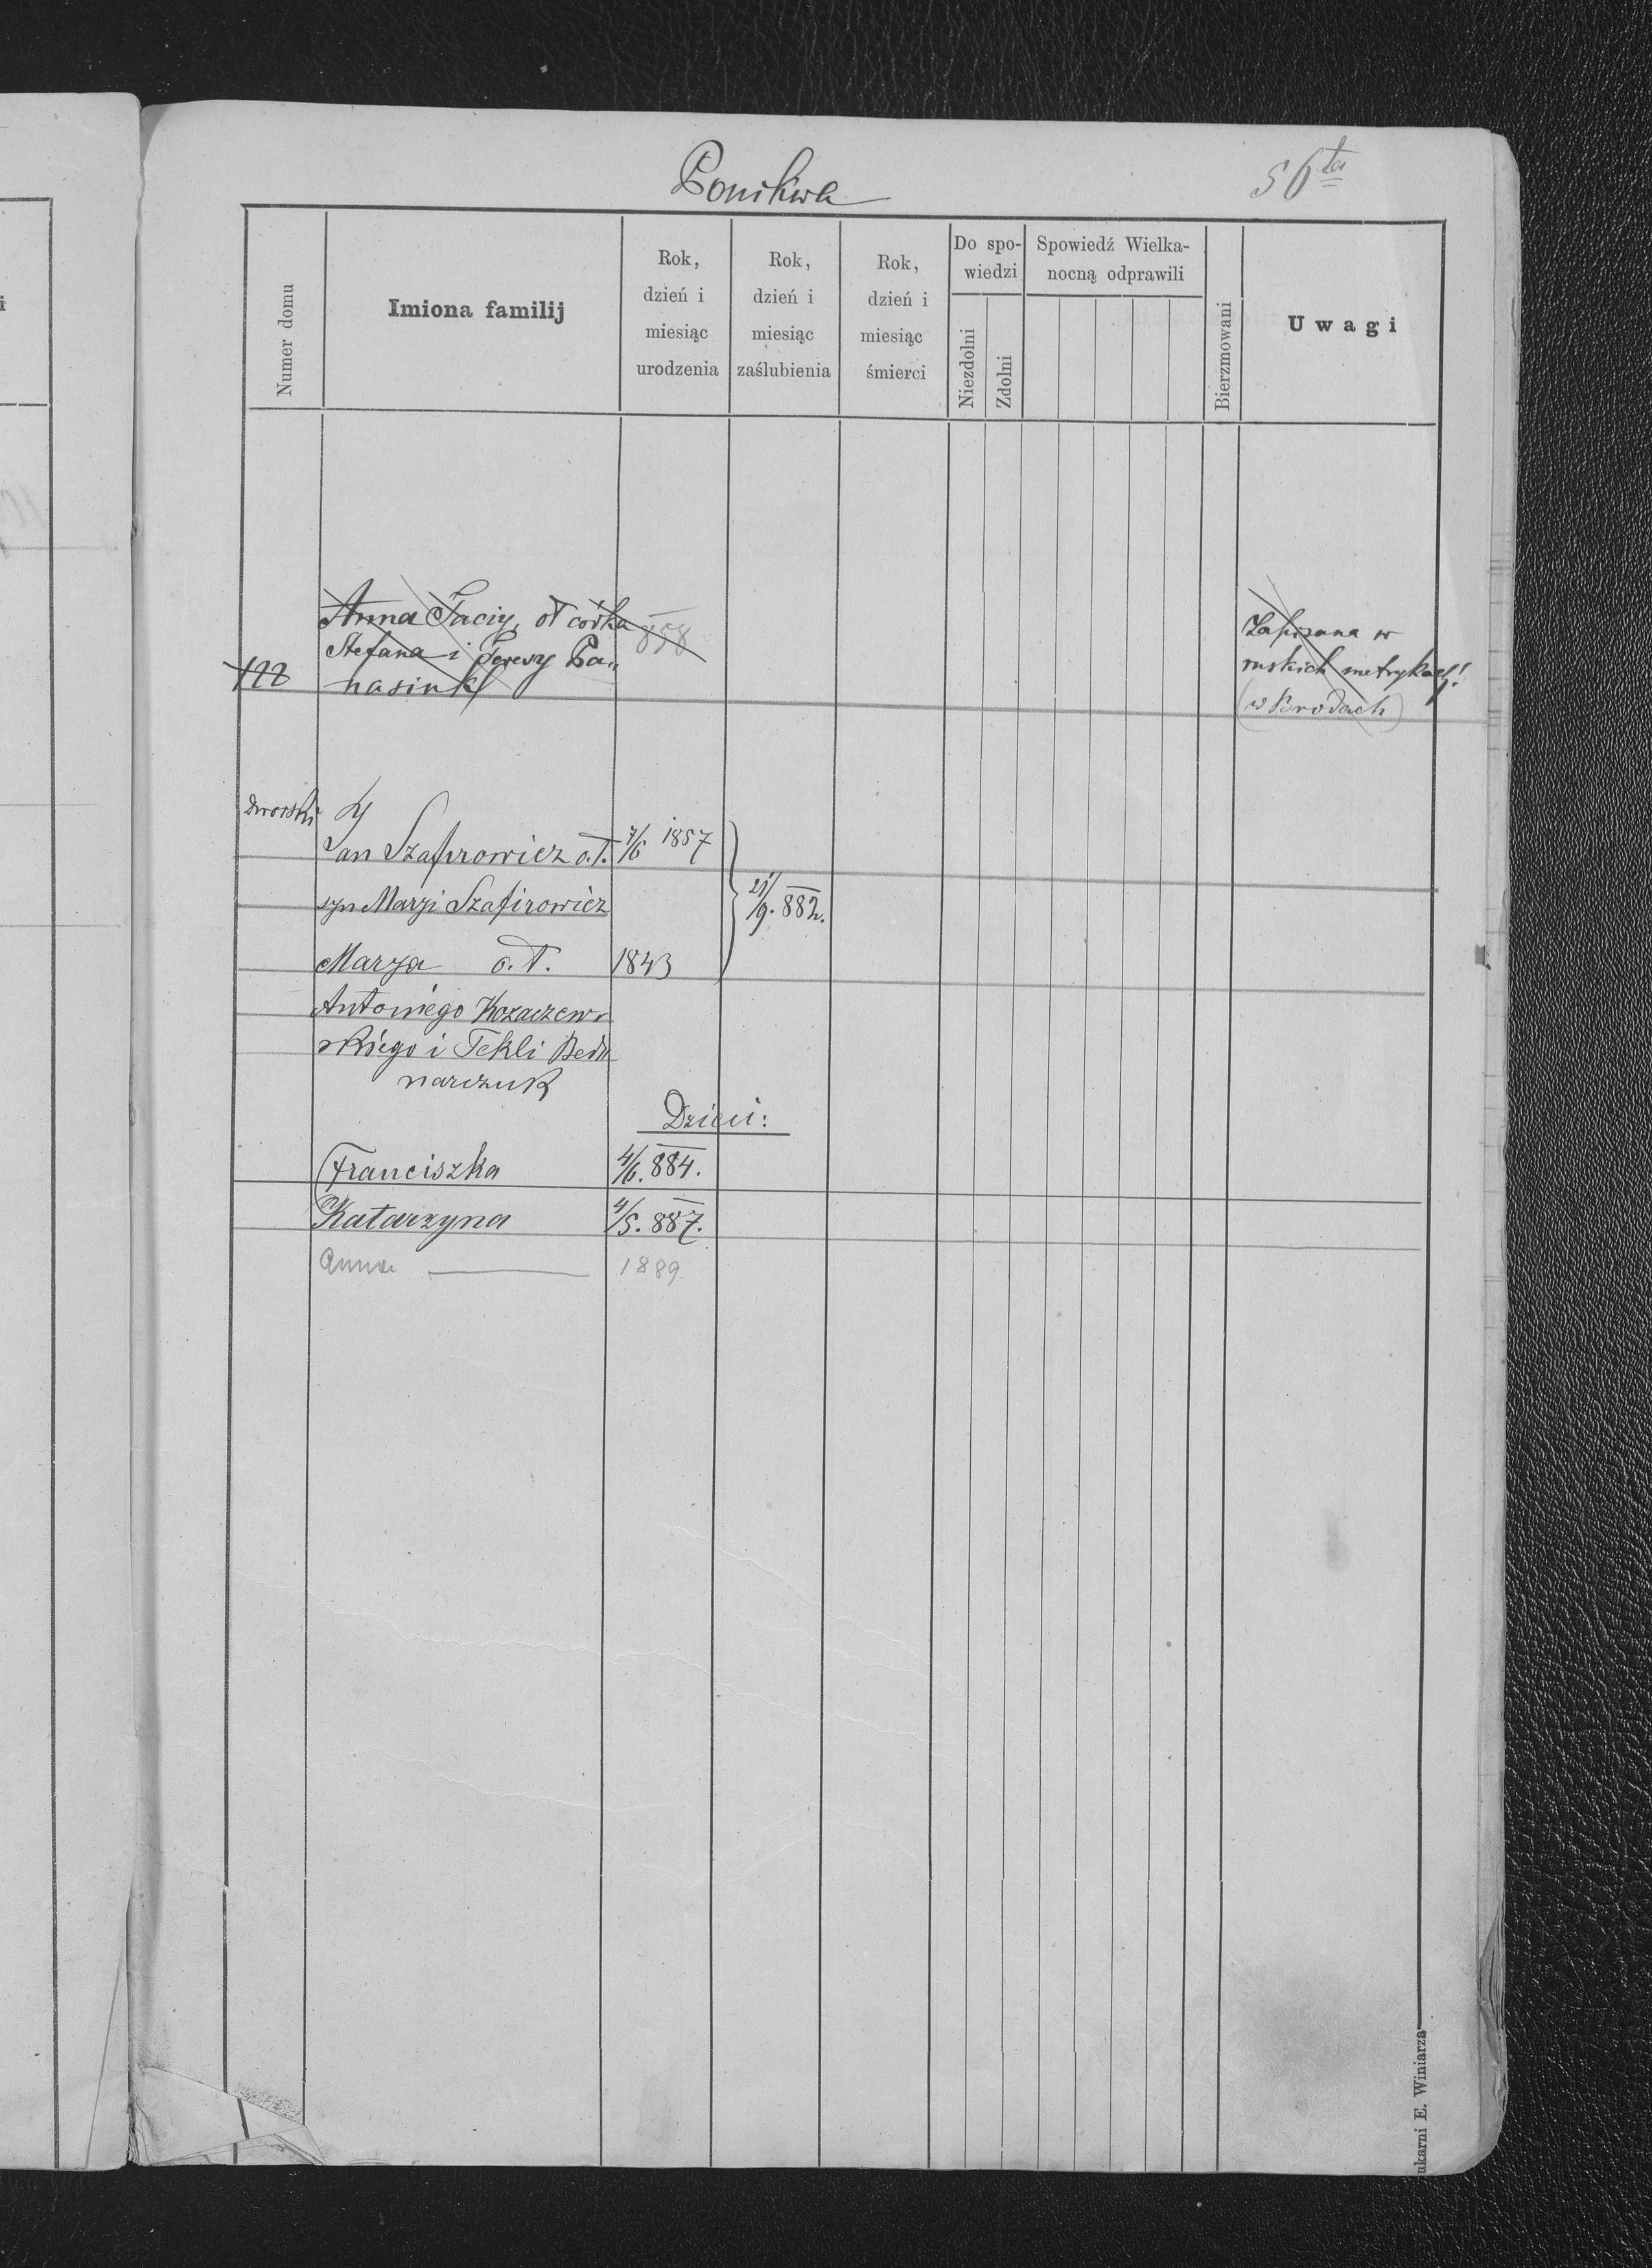 Ponikwa
56ta
Numer domu
Imiona familij
Rok, dzień i miesiąc urodzenia
Rok, dzień i miesiąc zaślubienia
Rok, dzień i miesiąc śmierci
Do spowiedzi
Niezdolni
Zdolni
Spowiedź Wielkanocną odprawili
Bierzmowani
Uwagi
Anna Taciy, oł córka 858
Stefana i Teresy Pa„
122 nasiuk
Zapisana w
ruskich metrykach!
(w Brodach)
dworski
Jan Szafirowicz o.ł. 7/6 1857
syn Maryi Szafirowicz 21/9. 882.
Marya o.ł. 1843
Antoniego Kozaczew„
skiego i Tekli Bed„
narczuk
Dzieci:
Franciszka 4/6. 884.
Katarzyna 4/5. 887.
Anna 1889
ukarni E. Winiarza